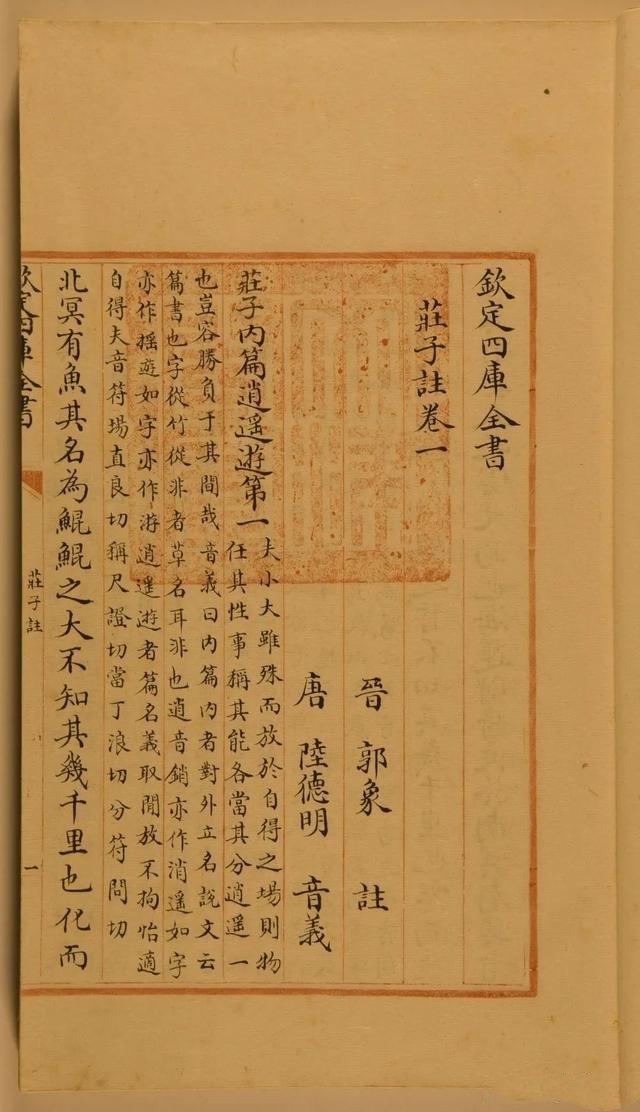 欽定四庫全書
莊子註卷一
晉 郭象 註
唐 陸德明 音義
莊子内篇逍遥遊第一
夫小大雖殊而放於自得之場則物
任其性事稱其能各當其分逍遥一
也豈容勝負于其間哉音義曰内篇内者對外立名說文云
篇書也字從竹從非者草名耳非也逍音銷亦作消遥如字
亦作揺遊如字亦作游逍遥遊者篇名義取閒放不拘怡適
自得夫音符場直良切稱尺證切當丁浪切分符問切
北冥有魚其名為鯤鯤之大不知其幾千里也化而
欽定四庫全書
莊子註
一